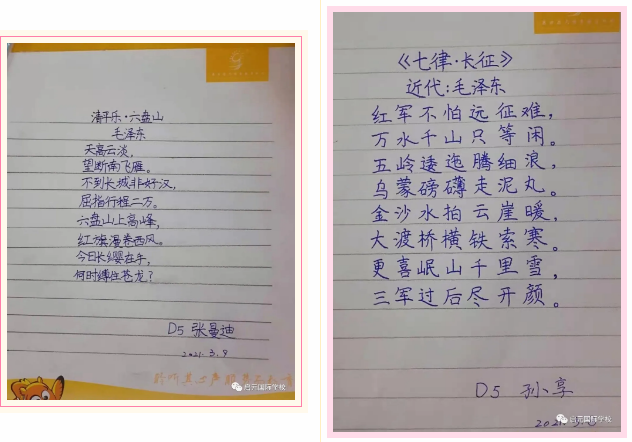 清平乐·六盘山
毛泽东
天高云淡，
望断南飞雁。
不到长城非好汉，
屈指行程二万。
六盘山上高峰，
红旗漫卷西风。
今日长缨在手，
何时缚住苍龙？
D5 张曼迪
2021.3.9
启云国际学校
《七律·长征》
近代:毛泽东
红军不怕远征难，
万水千山只等闲。
五岭逶迤腾细浪，
乌蒙磅礴走泥丸。
金沙水拍云崖暖，
大渡桥横铁索寒。
更喜岷山千里雪，
三军过后尽开颜。
D5 孙享
启云国际学校